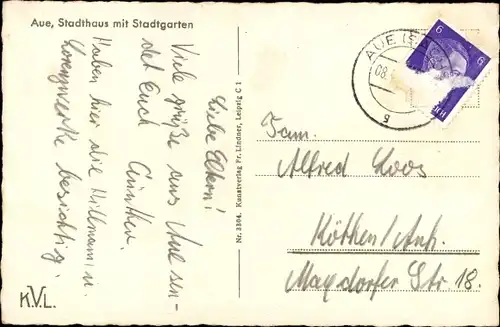 Aue, Stadthaus mit Stadtgarten
Liebe Eltern!
Viele grüße aus Aue sen-
det Euch Günther.
Haben hier die Hiltmann u.
Lorenzwerke besichtigt.
K.V.L.
Nr. 3364. Kunstverlag Fr. Lindner, Leipzig C 1
AUE (S
08.
g
6
6
Fam.
Alfred Loos
Köthen/Anh.
Magdorfer Str. 18.